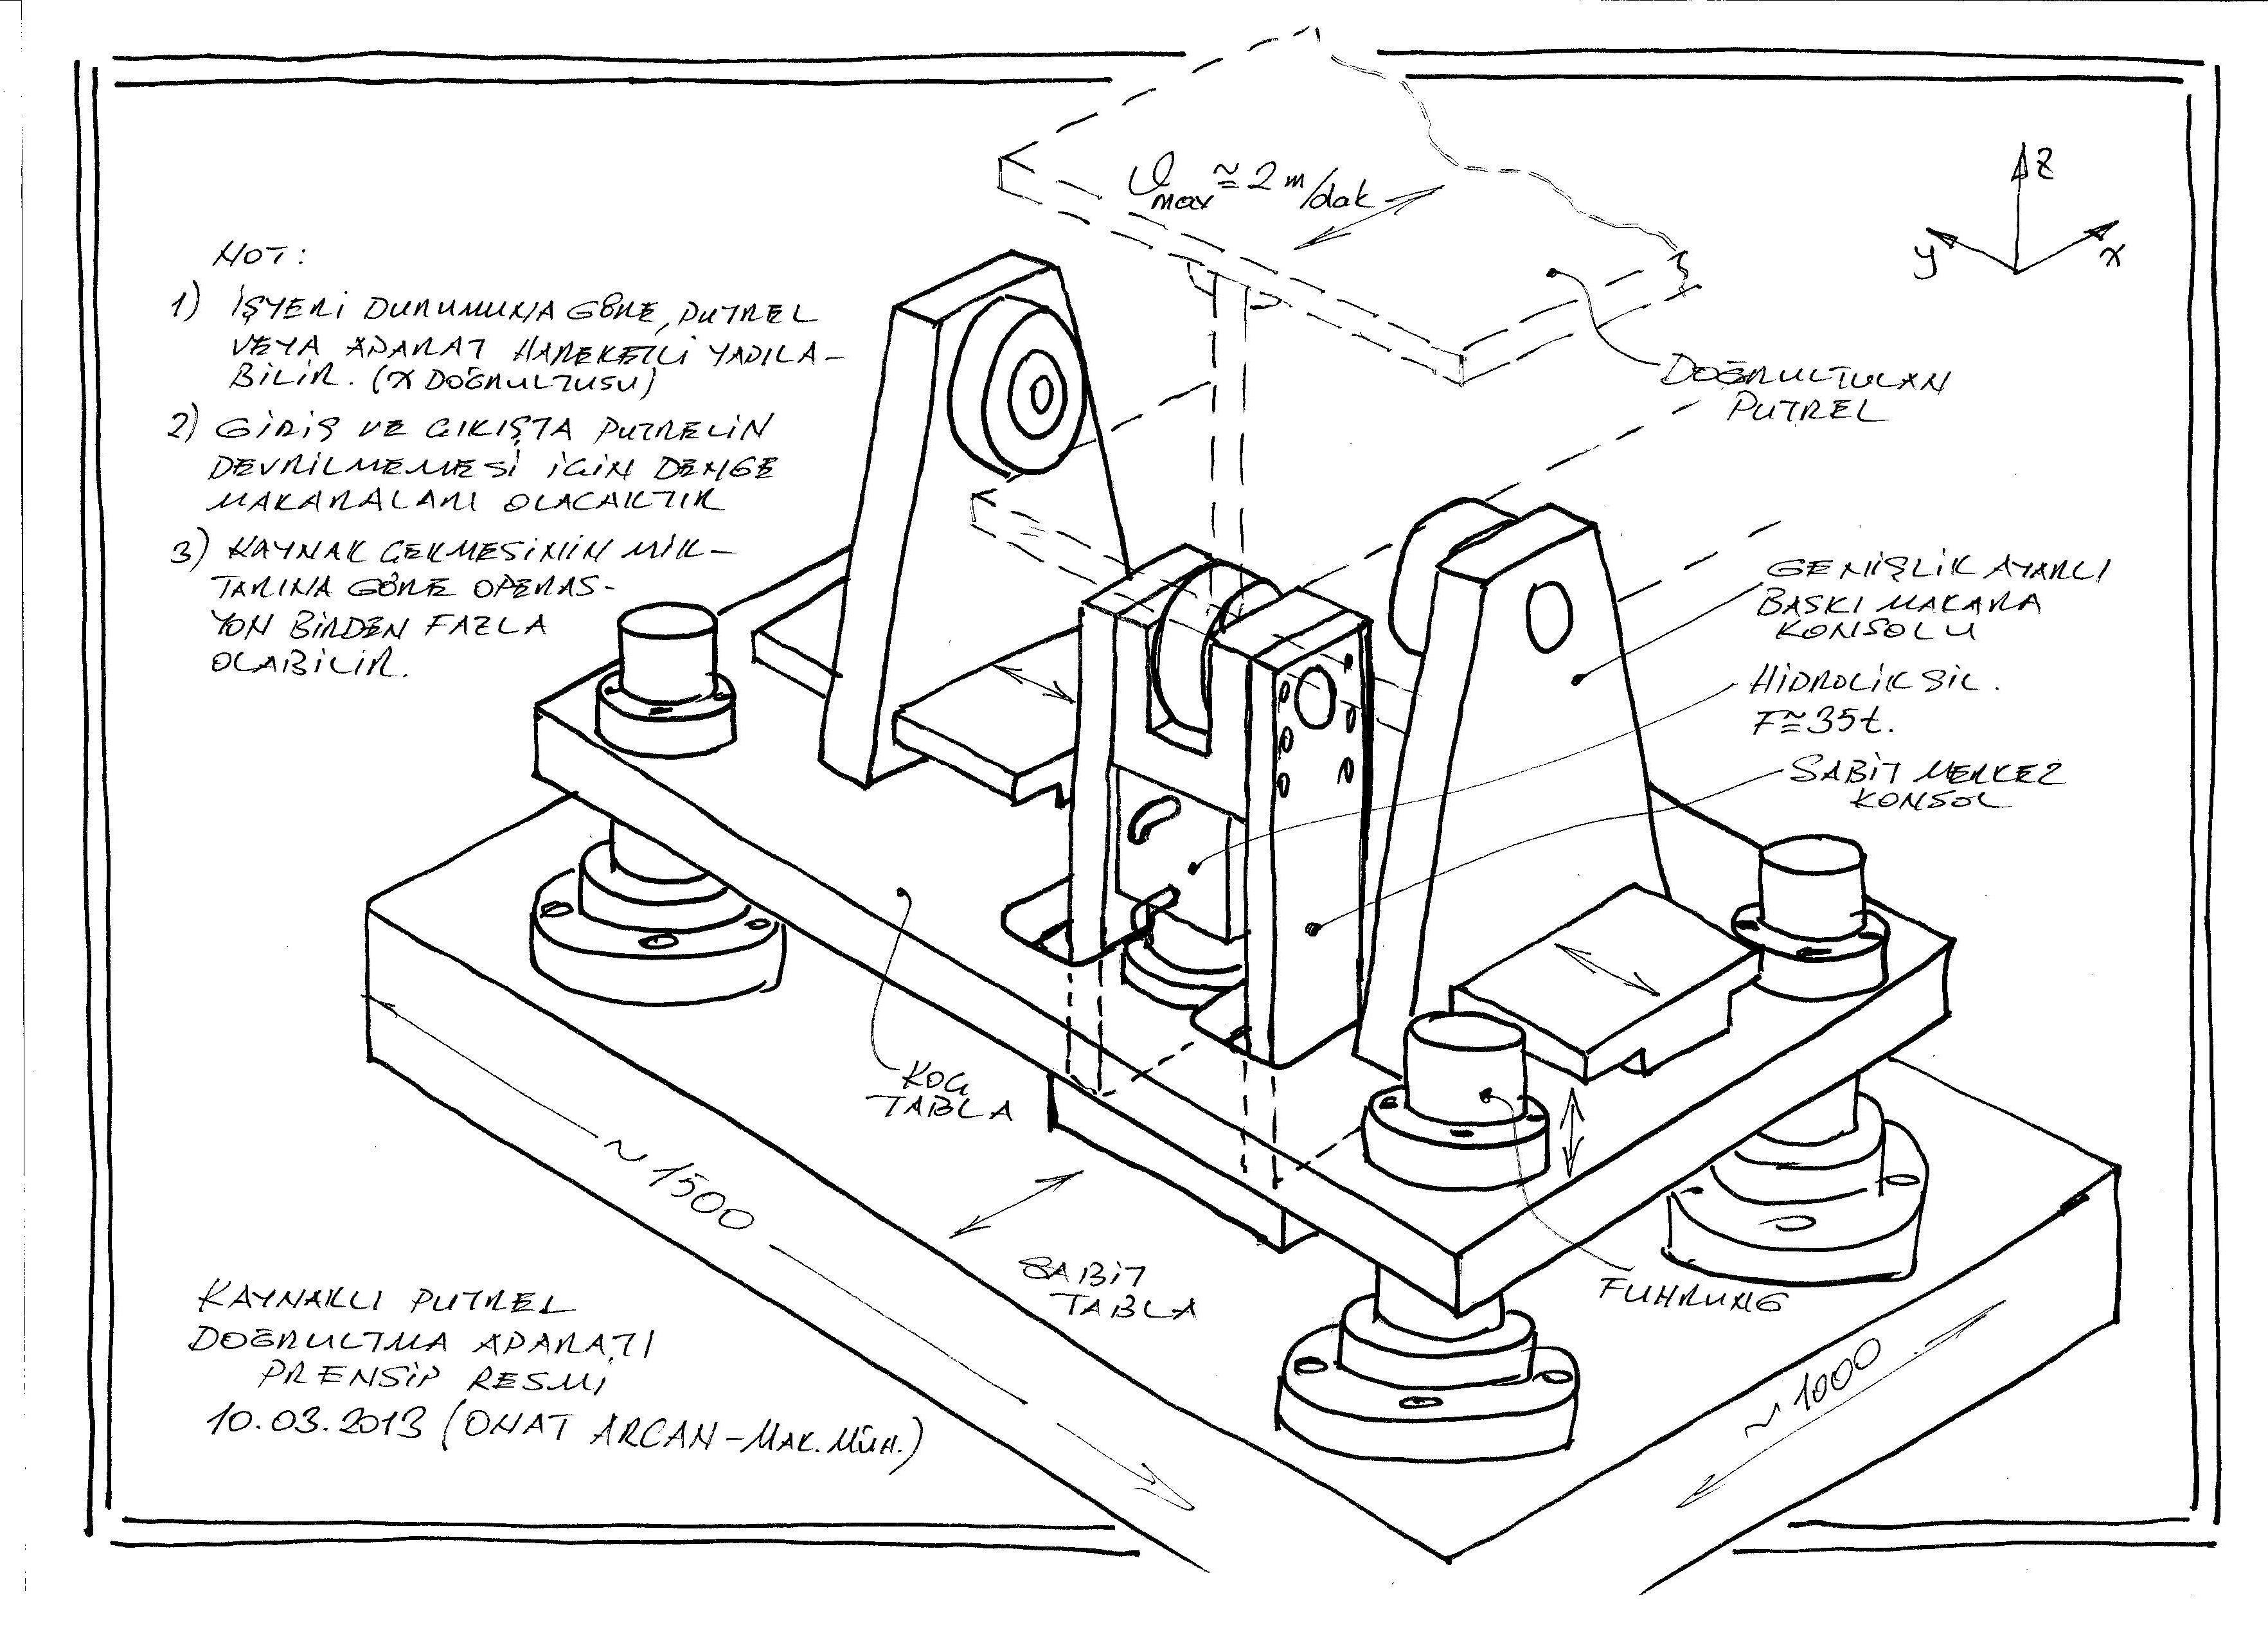 ϑmax ≅ 2 m/dak
z
y
x
NOT:
1) İŞYERİ DURUMUNA GÖRE, PUTREL
VEYA APARAT HAREKETLİ YAPILA-
BİLİR. (X DOĞRULTUSU)
2) GİRİŞ VE ÇIKIŞTA PUTRELİN
DEVRİLMEMESİ İÇİN DENGE
MAKARALARI OLACAKTIR
3) KAYNAK ÇEKMESİNİN MİK-
TARINA GÖRE OPERAS-
YON BİRDEN FAZLA
OLABİLİR.
DOĞRULTULAN
PUTREL
GENİŞLİK AYARLI
BASKI MAKARA
KONSOLU
HİDROLİK SİL.
F≅35t.
SABİT MERKEZ
KONSOL
KOÇ
TABLA
~1500
SABİT
TABLA
FUHRUNG
~1000
KAYNAKLI PUTREL
DOĞRULTMA APARATI
PRENSİP RESMİ
10.03.2013 (ONAT ARCAN-MAK.MÜH.)